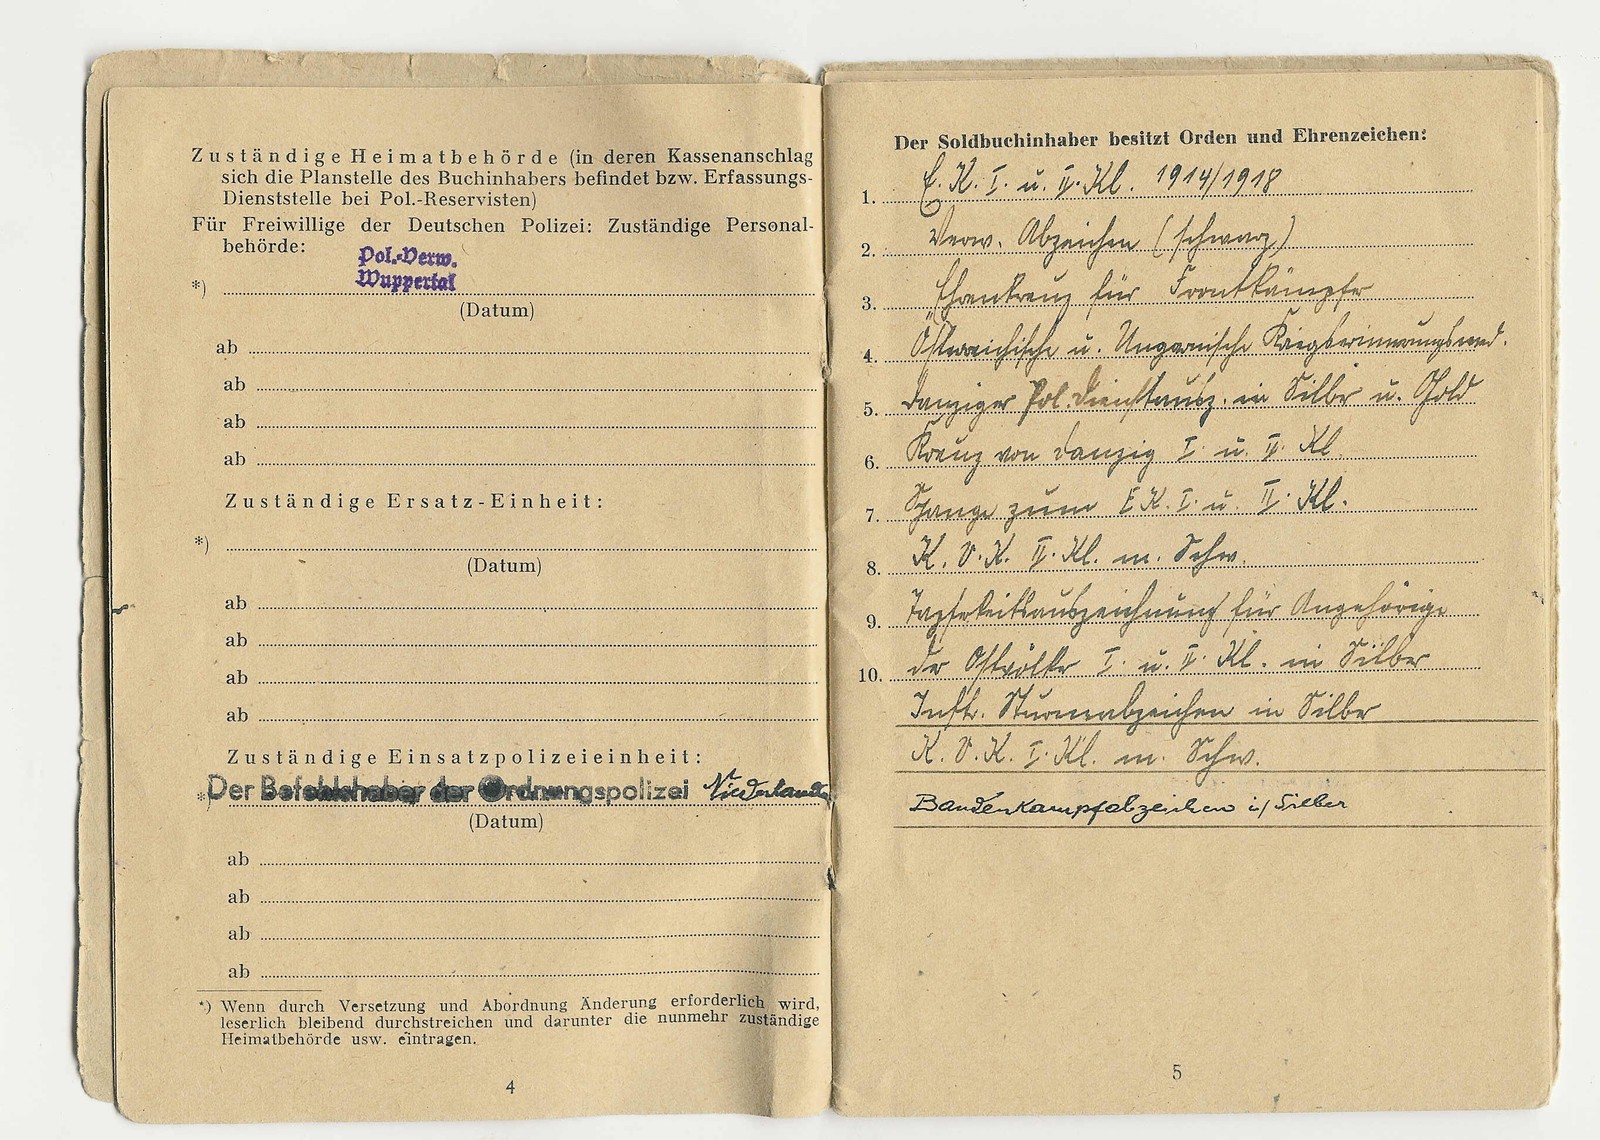 Zuständige Heimatbehörde (in deren Kassenanschlag
sich die Planstelle des Buchinhabers befindet bzw. Erfassungs-
Dienststelle bei Pol.-Reservisten)
Für Freiwillige der Deutschen Polizei: Zuständige Personal-
behörde:
Pol.-Verw.
Wuppertal
*)
(Datum)
ab
ab
ab
ab
Zuständige Ersatz-Einheit:
*)
(Datum)
ab
ab
ab
ab
Zuständige Einsatzpolizeieinheit:
*) Der Befehlshaber der Ordnungspolizei Niederlande
(Datum)
ab
ab
ab
ab
*) Wenn durch Versetzung und Abordnung Änderung erforderlich wird,
leserlich bleibend durchstreichen und darunter die nunmehr zuständige
Heimatbehörde usw. eintragen.
4
Der Soldbuchinhaber besitzt Orden und Ehrenzeichen:
1. E. K. I. u. II. Kl. 1914/1918
2. Verw. Abzeichen (schwarz)
3. Ehrenkreuz für Frontkämpfer
4. Österreichische u. Ungarische Kriegserinnerungsmed.
5. Danziger Pol. Dienstausz. in Silber u. Gold
6. Kreuz von Danzig I. u. II. Kl.
7. Spange zum E.K. I. u. II. Kl.
8. K. V. K. II. Kl. m. Schw.
9. Tapferkeitsauszeichnung für Angehörige
10. der Ostvölker I. u. II. Kl. in Silber
Inftr. Sturmabzeichen in Silber
K. V. K. I. Kl. m. Schw.
Bandenkampfabzeichen i/ Silber
5